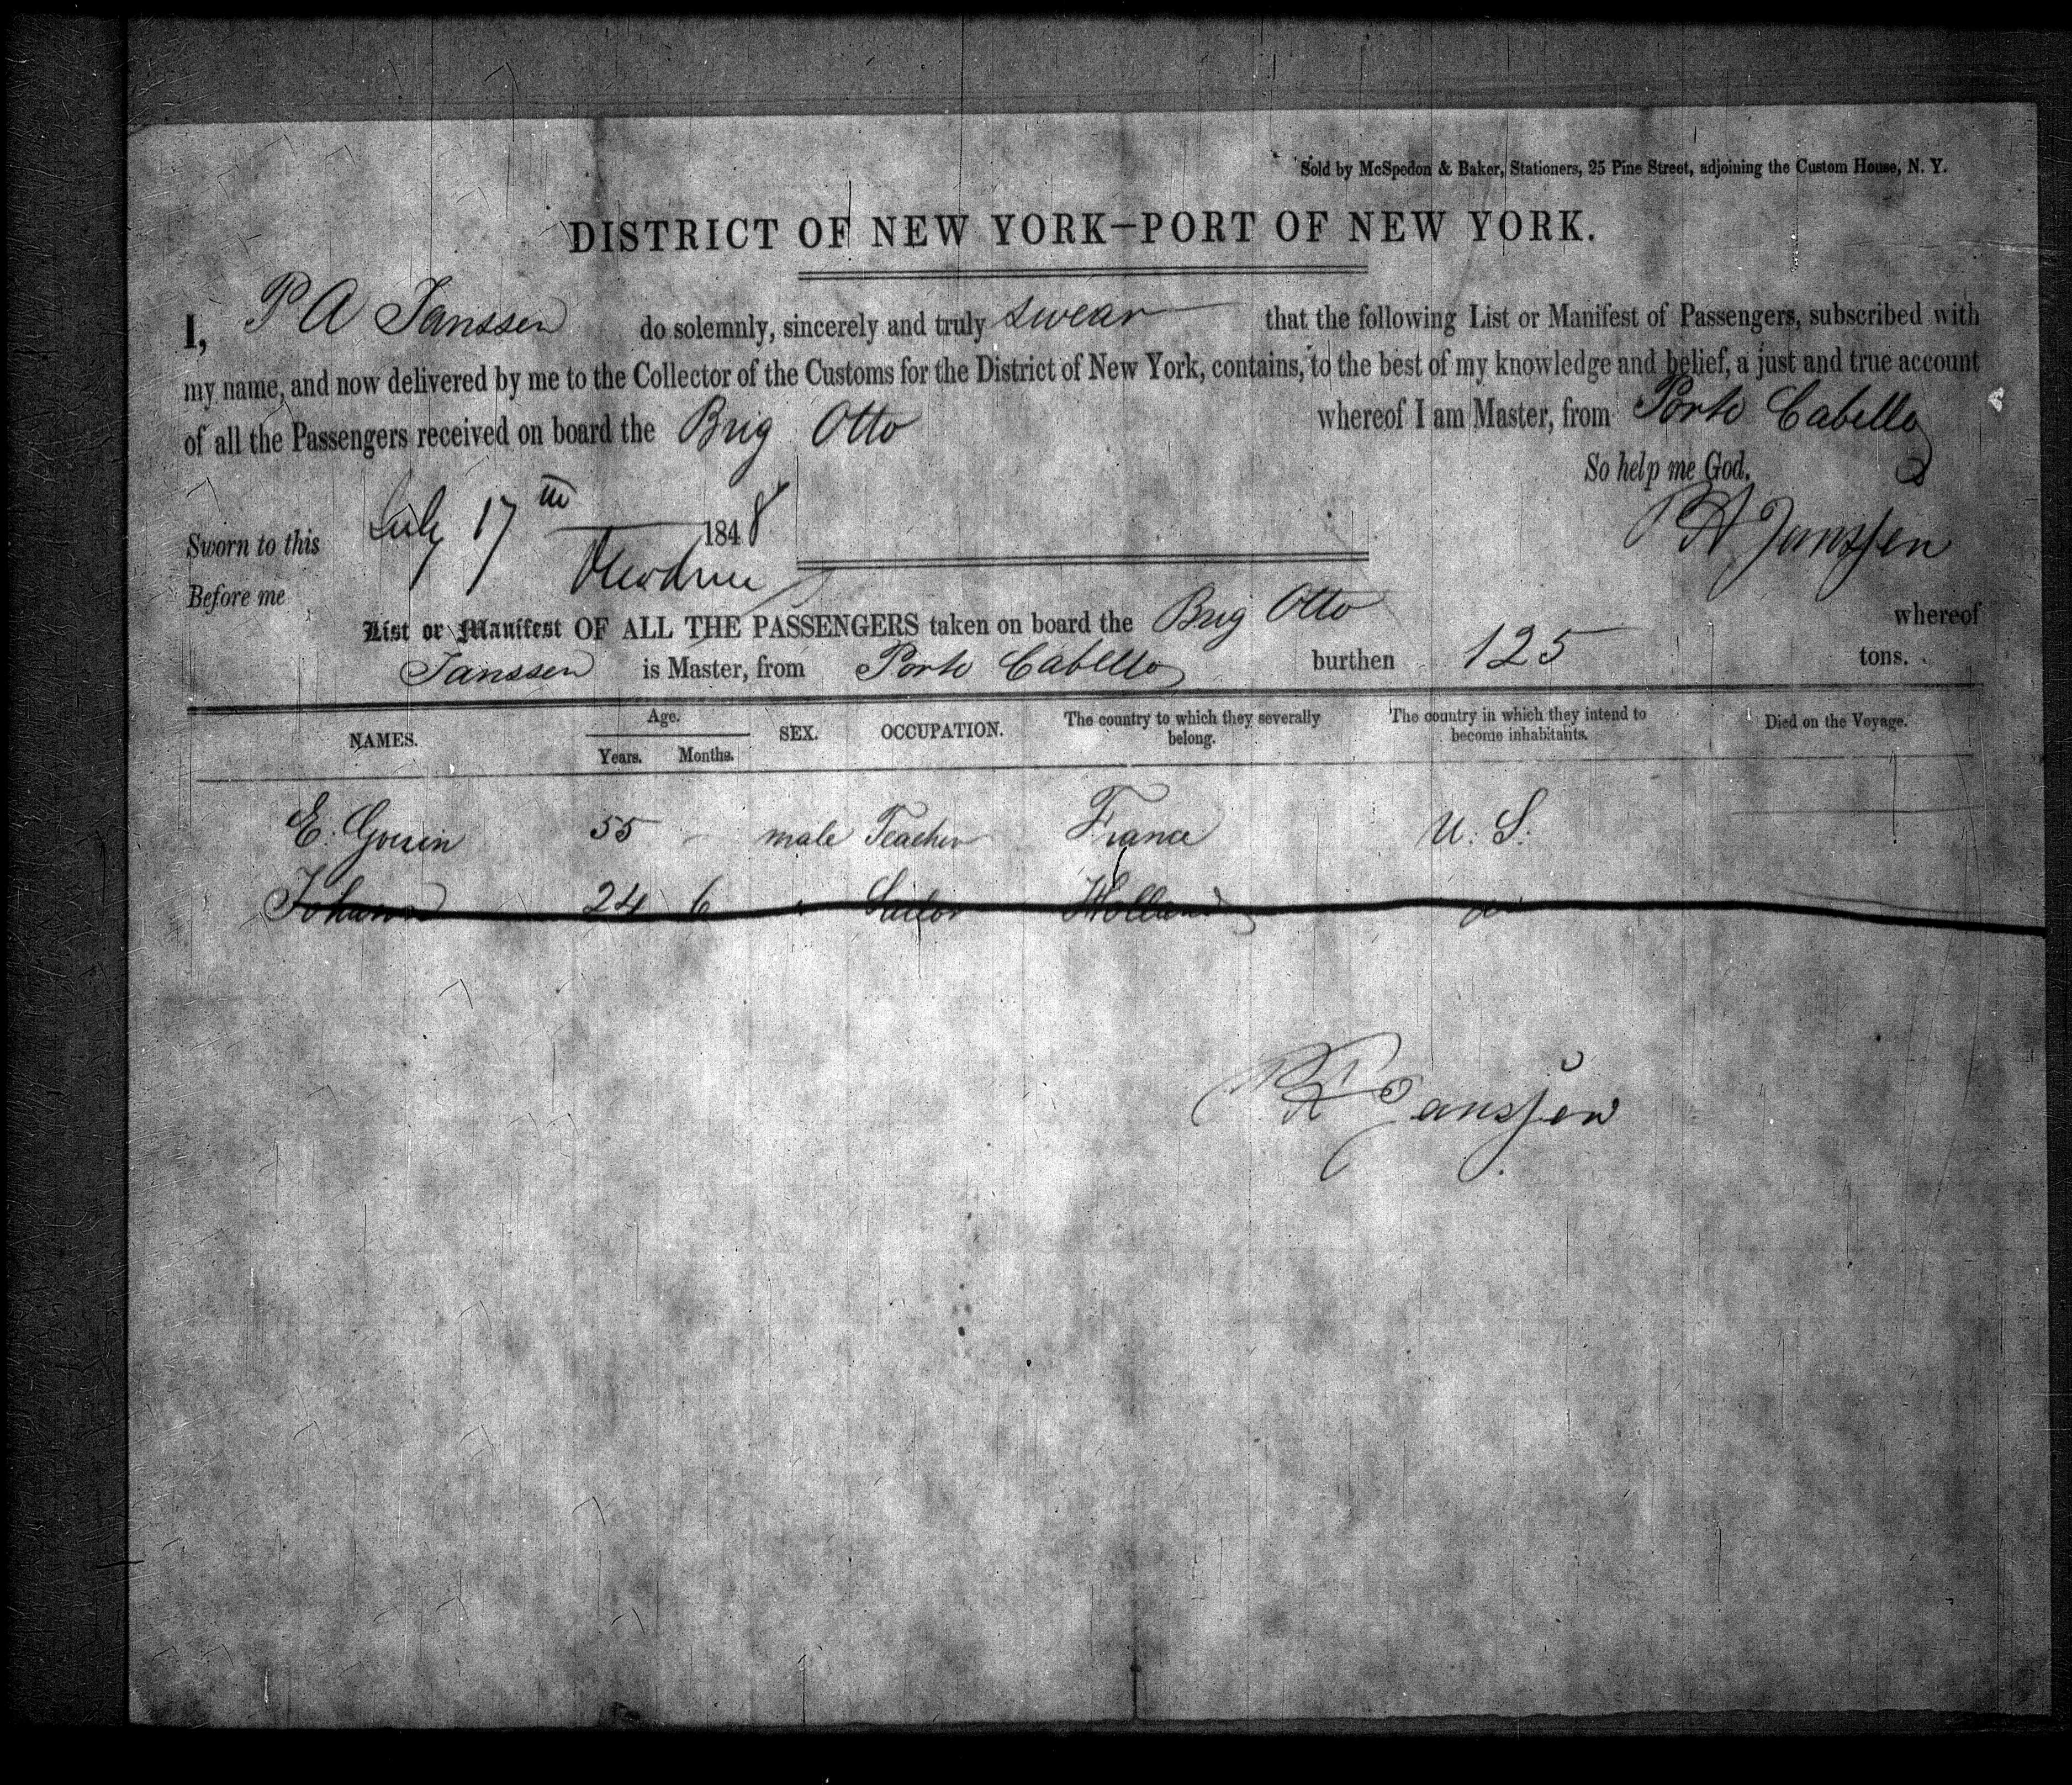 Sold by McSpedon & Baker, Stationers, 25 Pine Street, adjoining the Custom House, N. Y.
DISTRICT OF NEW YORK—PORT OF NEW YORK.
I, P A Janssen do solemnly, sincerely and truly swear that the following List or Manifest of Passengers, subscribed with
my name, and now delivered by me to the Collector of the Customs for the District of New York, contains, to the best of my knowledge and belief, a just and true account
of all the Passengers received on board the Brig Otto whereof I am Master, from Porto Cabello
So help me God.
Sworn to this July 17th 1848 PA Janssen
Before me
List or Manifest OF ALL THE PASSENGERS taken on board the Brig Otto whereof
Janssen is Master, from Porto Cabello burthen 125 tons.
NAMES. Age. Years. Months. SEX. OCCUPATION. The country to which they severally belong. The country in which they intend to become inhabitants. Died on the Voyage.
E. 55 - male Teacher France U. S.
Johann 24 6 Sailor Holland do
PA Janssen